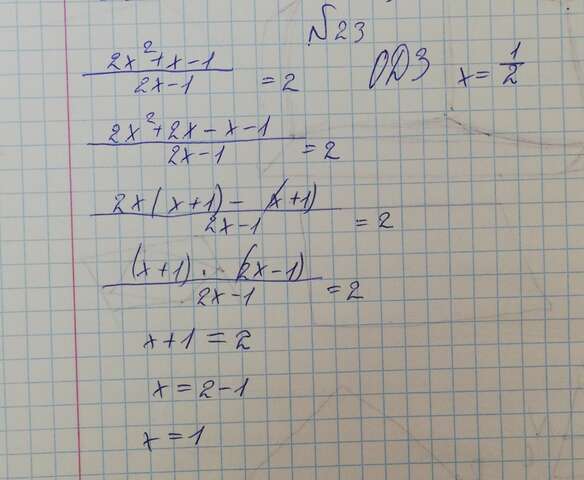 №23
2x²+x-1/2x-1 = 2 ОДЗ x = 1/2
2x²+2x-x-1/2x-1 = 2
2x(x+1)-(x+1)/2x-1 = 2
(x+1)·(2x-1)/2x-1 = 2
x+1=2
x=2-1
x=1